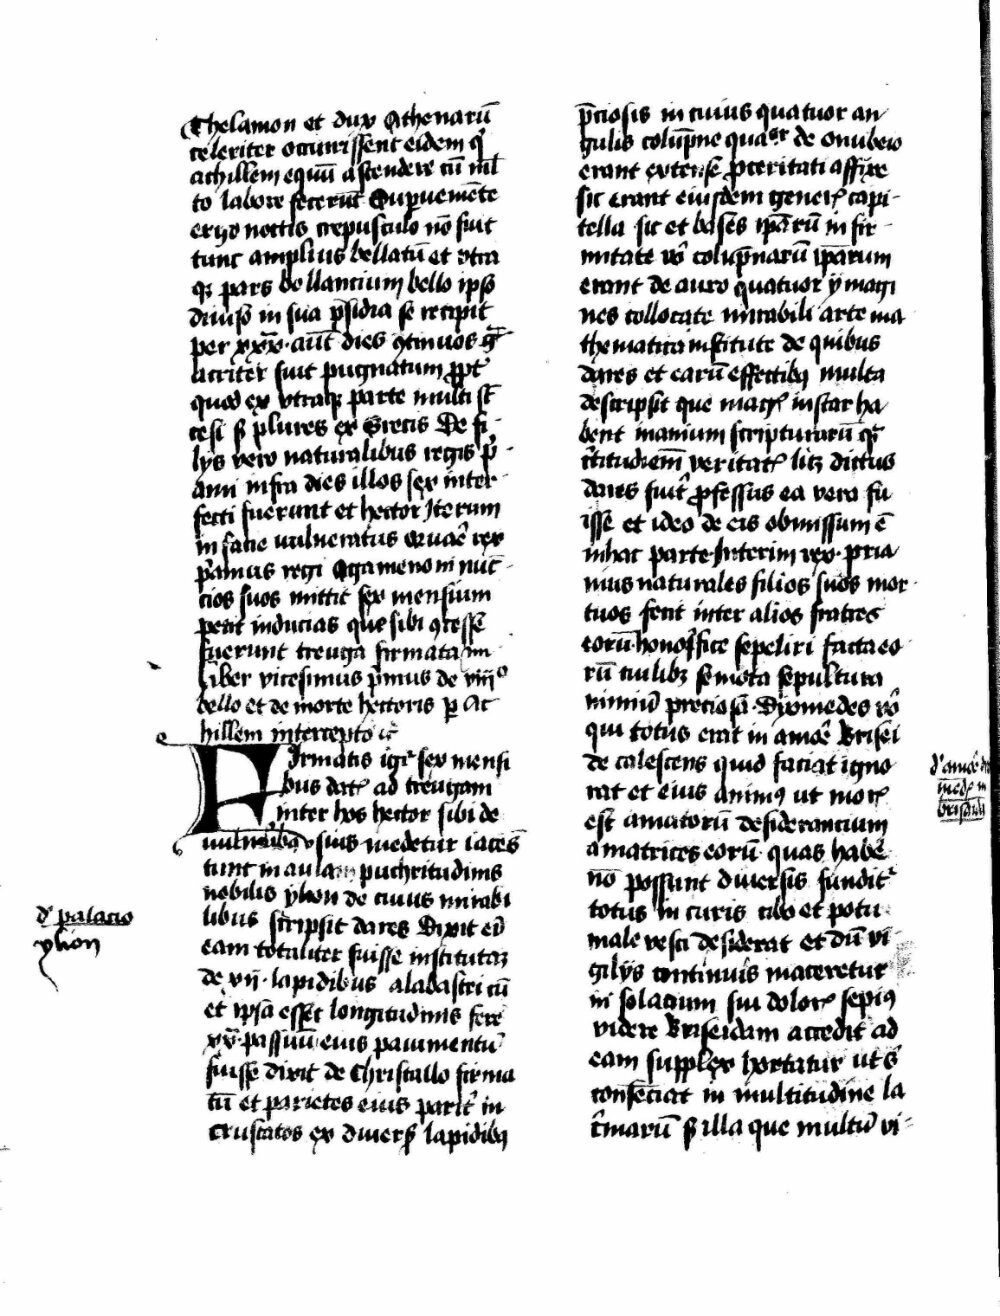 Thelamon et dux Athenarū
celeriter occurrissent eidem qͥ
achillem equū ascendere cū ml̄
to labore fecerūt Supuenīete
ergo noctis crepusculo nō fuit
tunc amplius bellatū et vtra
qꝫ pars bellancium bello ipso
diuiso in sua p̄sidia se recipit
per xxx aūt dies ꝯtinuos gͣ
uiter fuit pugnatum ꝓpt̾
quod ex vtraqꝫ parte multi st̄
cesi sꝫ plures ex Grecis De fi
lijs vero naturalibus regis pͥ
ami infra dies illos sex inter
fecti fuerunt et hector Iterum
in facie vulneratus Quaē rex
pͥamus regi Agamenoni nūc
cios suos mittit sex mensium
petit inducias que sibi ꝯcesse
fuerunt treuga firmata
liber vicesimus pͥmus de viijͦ
bello et de morte hectoris ꝑ Ac
hillem interrepto ic̄
Firmatis igͥ sex mensi
bus dat̾ ad treugam
inter hos hector sibi de
vulneribꝫ suis medetur iacēs
tunc in aulam puchritudinis
nobilis ylion de cuius mirabi
libus scripsit dares Dixit eī
eam totaliter fuisse institutaꝫ
de vij lapidibus alabastri cū
et ipsa esset longitudinis fere
xxͭ passuū eius paiumentū
fuisse dixit de Christallo firma
tū et parietes eius parit̾ in
crustatos ex diuers̾ lapidibꝫ
d̾ palacio
ylion
p̄ciosis in cuius quatuor an
gulis colūpne quaͭͦr de onubeio
erant extense ꝓceritati affixe
sic erant eiusdem gener̾ capi
tella sic et bases ip̄arū in fir
mitate vͦ colūpnarū ip̄arum
erant de auro quatuor ymagi
nes collocate mirabili arte ma
thematica institute de quibus
dares et earū effectibꝫ multa
descripsit que mag̾ instar ha
bent inanium scripturarū qͣ
c̾titudinem veritat̾ licꝫ dictus
dares fuit̾ ꝓfessus ea vera fu
isse et ideo de eis obmissum ē
in hac parte Interim rex pria
mus naturales filios suos mor
tuos fecit inter alios fratres
eorū honorifice sepeliri facta eo
rū cuilibꝫ semota sepultura
nimiū preciosa Dyomedes vͦ
qui totus erat in amoē Brisei
de calescens quid faciat igno
rat et eius animꝰ ut mor̾
est amatorū desiderancium
amatrices eorū quas habē
nō possunt diuersis fundit̾
totus in curis cibo et potu
male vesci desiderat et dū vi
gilijs continuis maceretur
in solacium sui dolor̾ sepiꝰ
videre Briseidam accedit ad
eam supplex hortatur ut s̾
consenciat in multitudine la
c̾marū sꝫ illa que multū vi
d̾ amoē dio
med̾ in
briseida